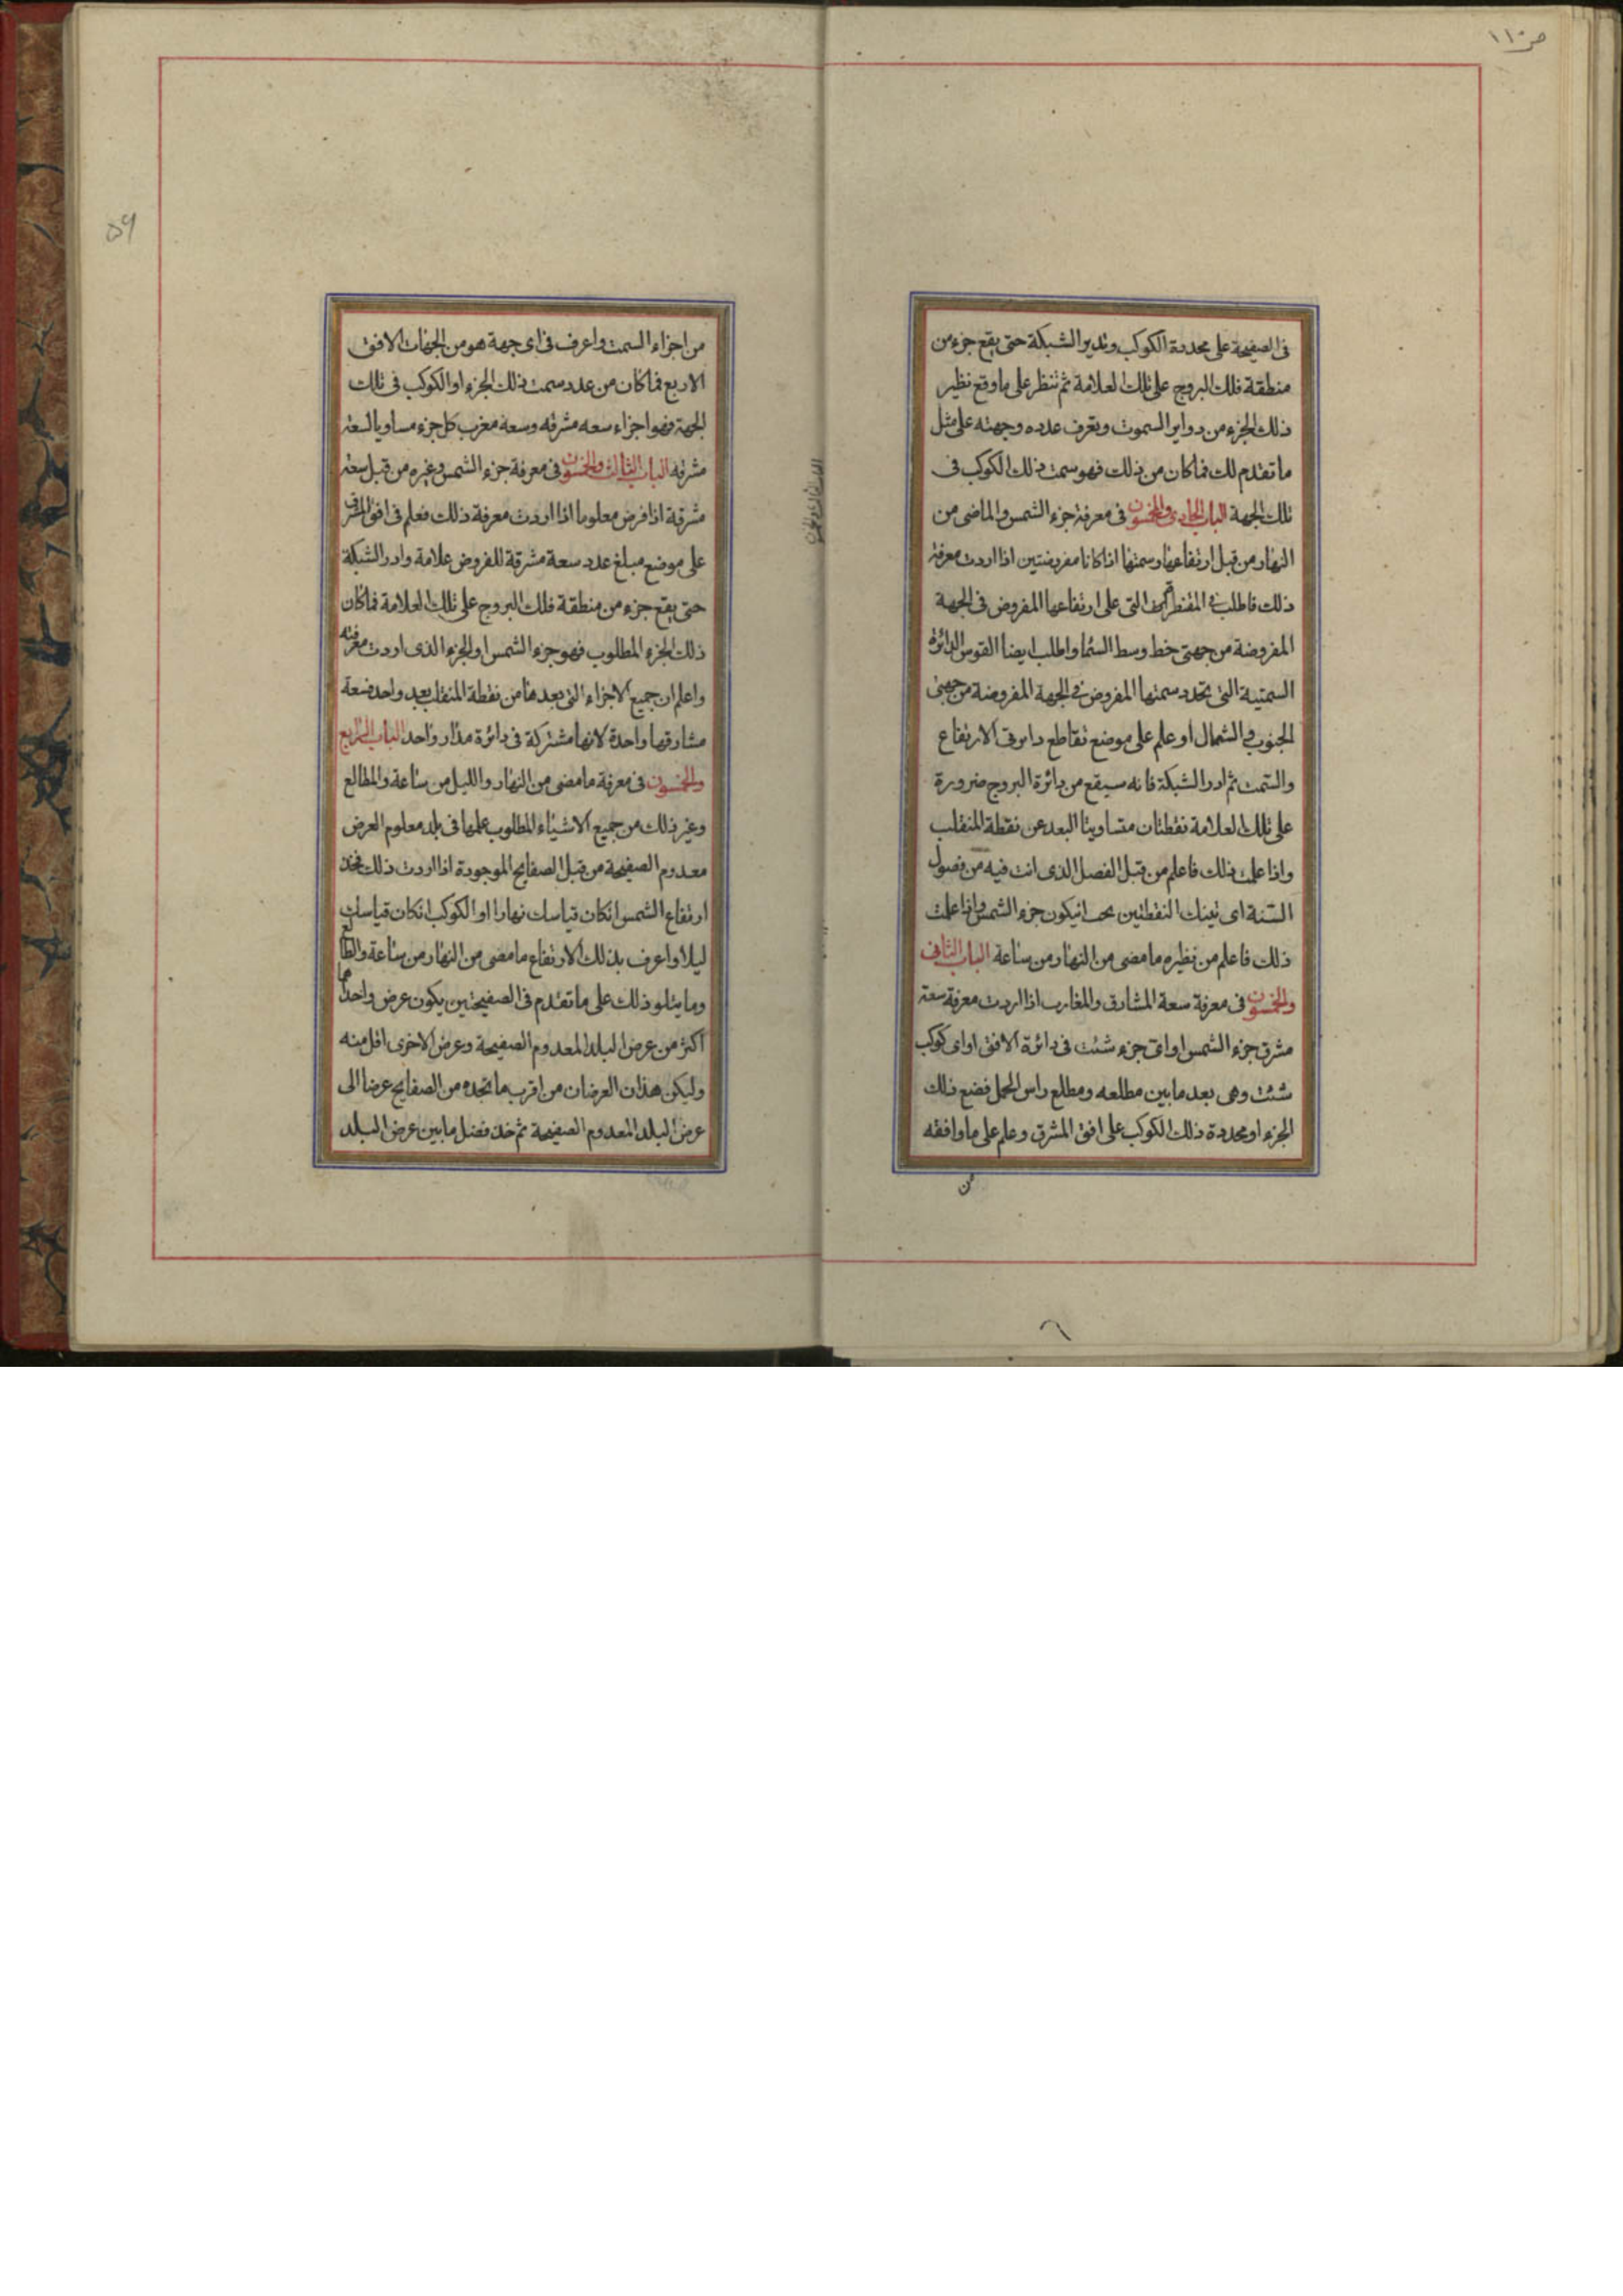 ص ١١٠
فى الصفيحة على محددة الكوكب وتدير الشبكة حتى يقع جزء من
منطقة فلك البروج على تلك العلامة ثم تنظر على ما وقع نظير
ذلك الجزء من دواير السموت وتعرف عدده وجهته على مثل
ما تقدم لك فما كان من ذلك فهو سمت ذلك الكوكب فى
تلك الجهة الباب الحادى والخمسون فى معرفة جزء الشمس والماضى من
النهار من قبل ارتفاعها وسمتها اذا كانا مفروضتين اذا اردت معرفة
ذلك فاطلب فى المقنطرات التى على ارتفاعها المفروض فى الجهة
المفروضة من جهتى خط وسط السما واطلب ايضا القوس الدائرة
السمتية التى تحدد سمتها المفروض فى الجهة المفروضة من جهتى
الجنوب والشمال او علم على موضع تقاطع دايرتى الارتفاع
والسمت ثم ادر الشبكة فانه سيقع من دائرة البروج ضرورة
على تلك العلامة نقطتان متساويتا البعد عن نقطة المنقلب
واذا علمت ذلك فاعلم من قبل الفصل الذى انت فيه من فصول
السنة اى تينك النقطتين يجب ان يكون جزء الشمس واذا علمت
ذلك فاعلم من نظيره ما مضى من النهار من ساعة الباب الثانى
والخمسون فى معرفة سعة المشارق والمغارب اذا اردت معرفة سعة
مشرق جزء الشمس او اى جزء شئت فى دائرة الافق او اى كوكب
شئت وهى بعد ما بين مطلعه ومطلع راس الحمل فضع ذلك
الجزء او محددة ذلك الكوكب على افق المشرق وعلم على ما وافقه
من
٥٩
من اجزاء السمت واعرف فى اى جهة هو من الجهات الافق
الاربع فما كان من عدد سمت ذلك الجزء او الكوكب فى تلك
الجهة فهو اجزاء سعه مشرقه وسعة مغرب كل جزء مساويا لسعة
مشرقه الباب الثالث والخمسون فى معرفة جزء الشمس وغيره من قبل سعة
مشرقة اذا فرض معلوما اذا اردت معرفة ذلك فعلم فى افق المشرق
على موضع مبلغ عدد سعة مشرقة المفروض علامة وادر الشبكة
حتى يقع جزء من منطقة فلك البروج على تلك العلامة فما كان
ذلك الجزء المطلوب فهو جزء الشمس او الجزء الذى اردت معرفته
واعلم ان جميع الاجزاء التى بعدها من نقطة المنقلب بعد واحد فسعة
مشارقها واحدة لانها مشتركة فى دائرة مدار واحد الباب الرابع
والخمسون فى معرفة ما مضى من النهار والليل من ساعة والمطالع
وغير ذلك من جميع الاشياء المطلوب علمها فى بلد معلوم العرض
معدوم الصفيحة من قبل الصفايح الموجودة اذا اردت ذلك فخذ
ارتفاع الشمس انكان قياسك نهارا او الكوكب انكان قياسك
ليلا واعرف بذلك الارتفاع ما مضى من النهار من ساعة والطالع
وما يتلو ذلك على ما تقدم فى الصفيحتين يكون عرض واحداهما
اكثر من عرض البلد المعدوم الصفيحة وعرض الاخرى اقل منه
وليكن هذان العرضان من اقرب ما تجده من الصفايح عرضا الى
عرض البلد المعدوم الصفيحة ثم خذ فضل ما بين عرض البلد